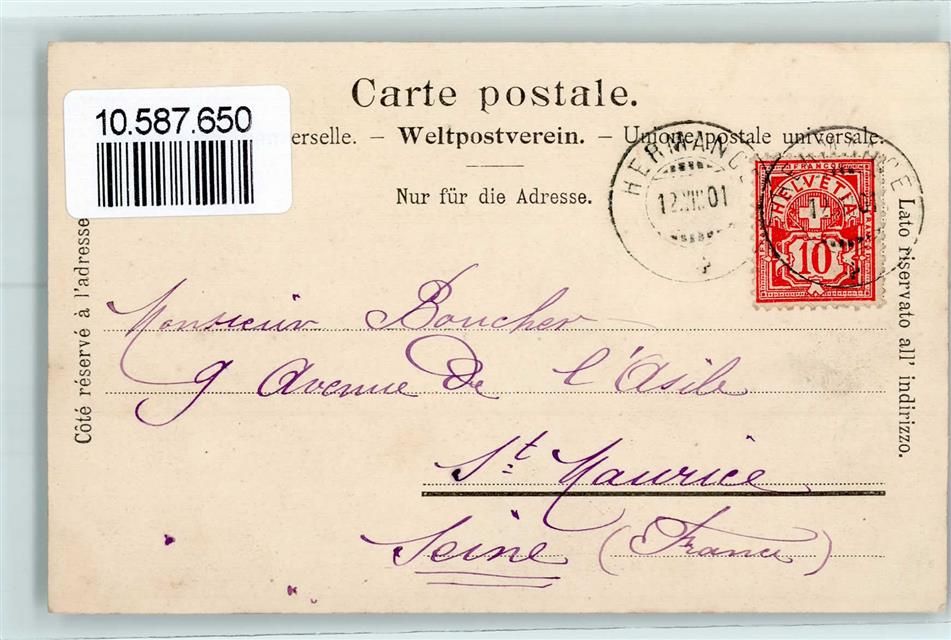 Carte postale.
10.587.650
erselle. — Weltpostverein. — Unione postale universale.
Nur für die Adresse.
HERMANCE
12.VIII.01
HERMANCE
FRANCO
HELVETIA
10
Côté réservé à l'adresse
Lato riservato all' indirizzo.
Monsieur Boucher
9 Avenue de l'Asile
St. Maurice
Seine (France)